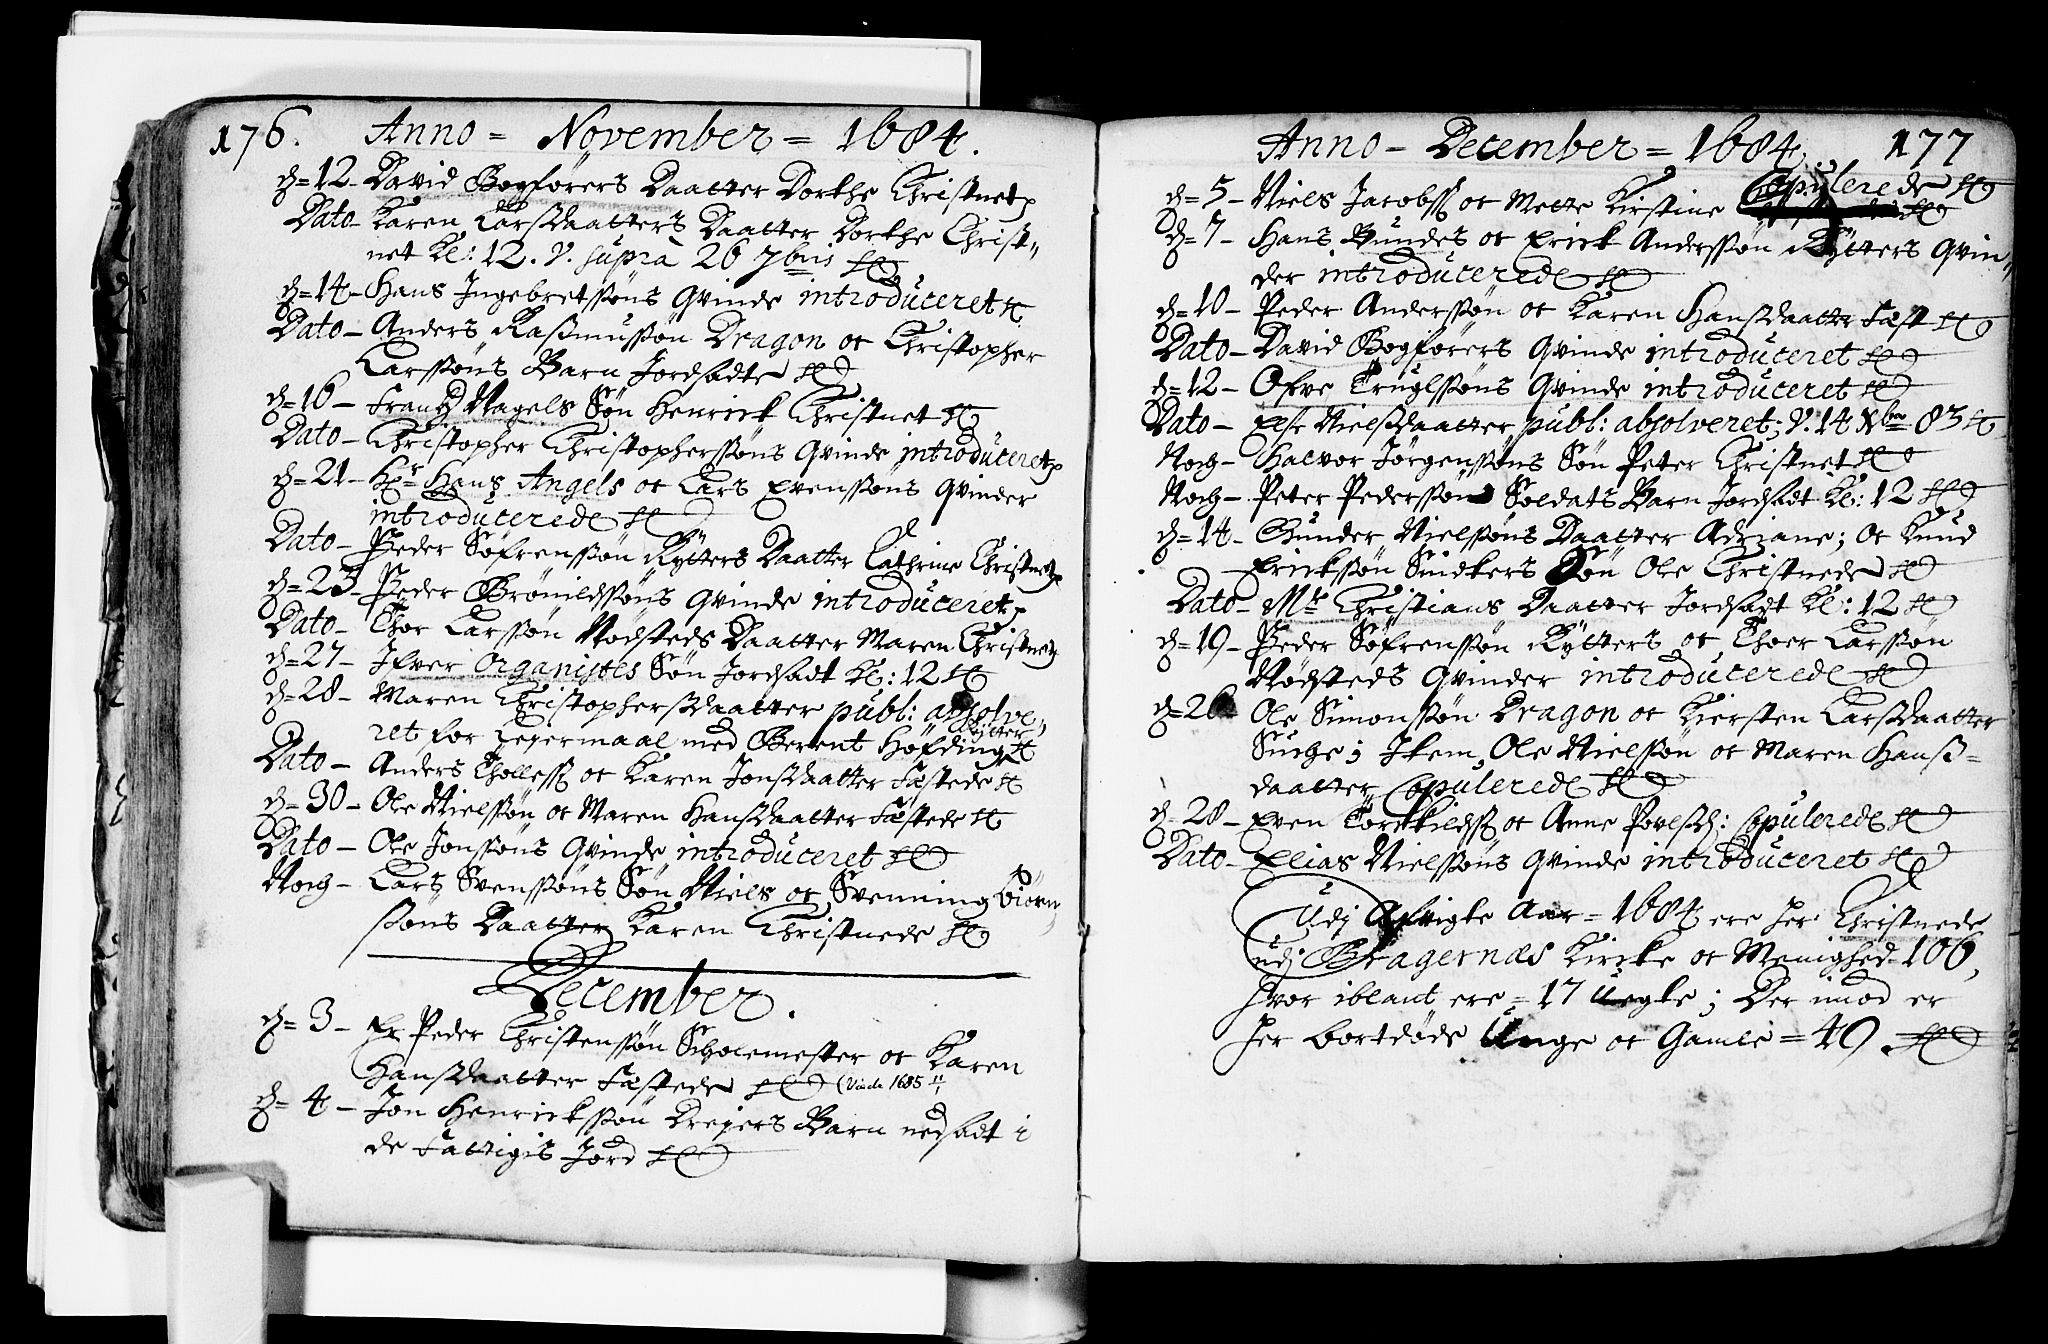 176. Anno = November = 1684.
d=12- David Bogførers Daatter Dorthe Christnet
Dato- Karen Larsdaatters Daatter Dorthe Christ=
net Kl: 12. V. supra 26 7bris
d=14- Hans Ingebretssøns Qvinde introduceret
Dato- Anders Rasmussøn Dragon oc Christopher
Larssøns Barn Jordsadte
d=16- Frantz Nagels Søn Henrick Christnet
Dato- Christopher Christopherssøns Qvinde introduceret
d=21- Hr Hans Angels oc Lars Evenssøns Qvinder
introducerede
Dato- Peder Søfrenssøn Rytters Daatter Cathrine Christnet
d=23- Peder Brønildssøns Qvinde introduceret
Dato- Thor Larssøn Nødsteds Daatter Maren Christnet
d=27- Ifver Organistes Søn Jordsadt Kl: 12
d=28- Maren Christophersdaatter publ: absolve=
ret for Leyermaal med Berent Høfding Rytter
Dato- Anders Tholless oc Karen Jonsdaatter Fæstede
d=30- Ole Nielssøn oc Maren Hansdaatter Fæstede
Dato- Ole Jonssøns Qvinde introduceret
Noch- Lars Svenssøns Søn Niels oc Svenning Biørn=
søns Daatter Karen Christnede
December.
d= 3- Hr Peder Christenssøn Scholemester oc Karen
Hansdaatter Fæstede (Vide 1685
d= 4- Jon Henrickssøn Dreyers Barn nedsadt i
de Fattigis Jord
Anno - December = 1684. 177
d= 5- Niels Jacobss oc Mette Kirstine Copulerede
d= 7- Hans Bundes oc Erick Anderssøn Rytters Qvin=
der introducerede
d=10- Peder Anderssøn oc Karen Hansdaatter Fæst
Dato- David Bogførers Qvinde introduceret
d=12- Ofve Truglssøns Qvinde introduceret
Dato- Else Nielsdaatter publ: absolveret; V. 14 Xbr 83
Noch- Halvor Jørgenssøns Søn Peter Christnet
Noch- Peter Pederssøn Soldats Barn Jordsadt Kl: 12
d=14- Gunder Nielssøns Daatter Adriane; oc Knud
Erickssøn Snidkers Søn Ole Christnede
Dato- Mr Christians Daatter Jordsadt Kl: 12
d=19- Peder Søfrenssøn Rytters oc Thoer Larssøn
Nødsteds Qvinder introducerede
d=26 Ole Simonssøn Dragon oc Kiersten Larsdaatter
Suche; Item, Ole Nielssøn oc Maren Hans=
daatter Copulerede
d=28- Even Torckildss oc Anne Povelsd: Copulerede
Dato- Elias Nielssøns Qvinde introduceret
Udj Afvigte Aar = 1684 ere her Christnede
udj Bragernæs Kircke oc Menighed 106,
hvor iblant ere = 17 Uegte; Der imod er
her bortdøde Unge oc Gamle = 49.